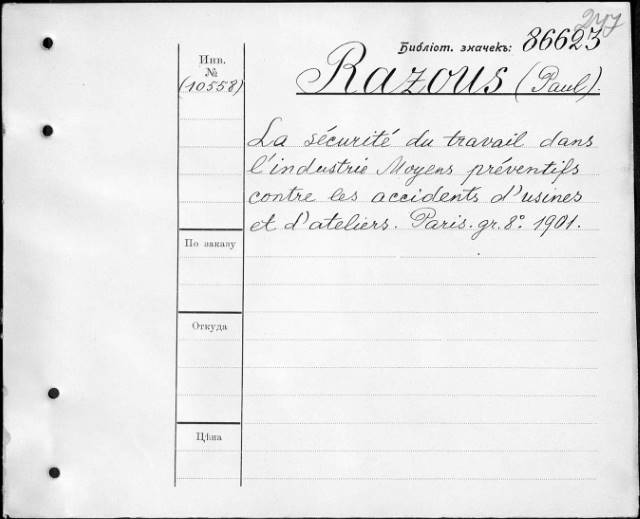 247
Библіот. значекъ: 86623
Инв.
№
(10558)
Razous (Paul).
La sécurité du travail dans
l'industrie Moyens préventifs
contre les accidents d'usines
et d'ateliers. Paris. gr. 8º. 1901.
По заказу
Откуда
Цѣна